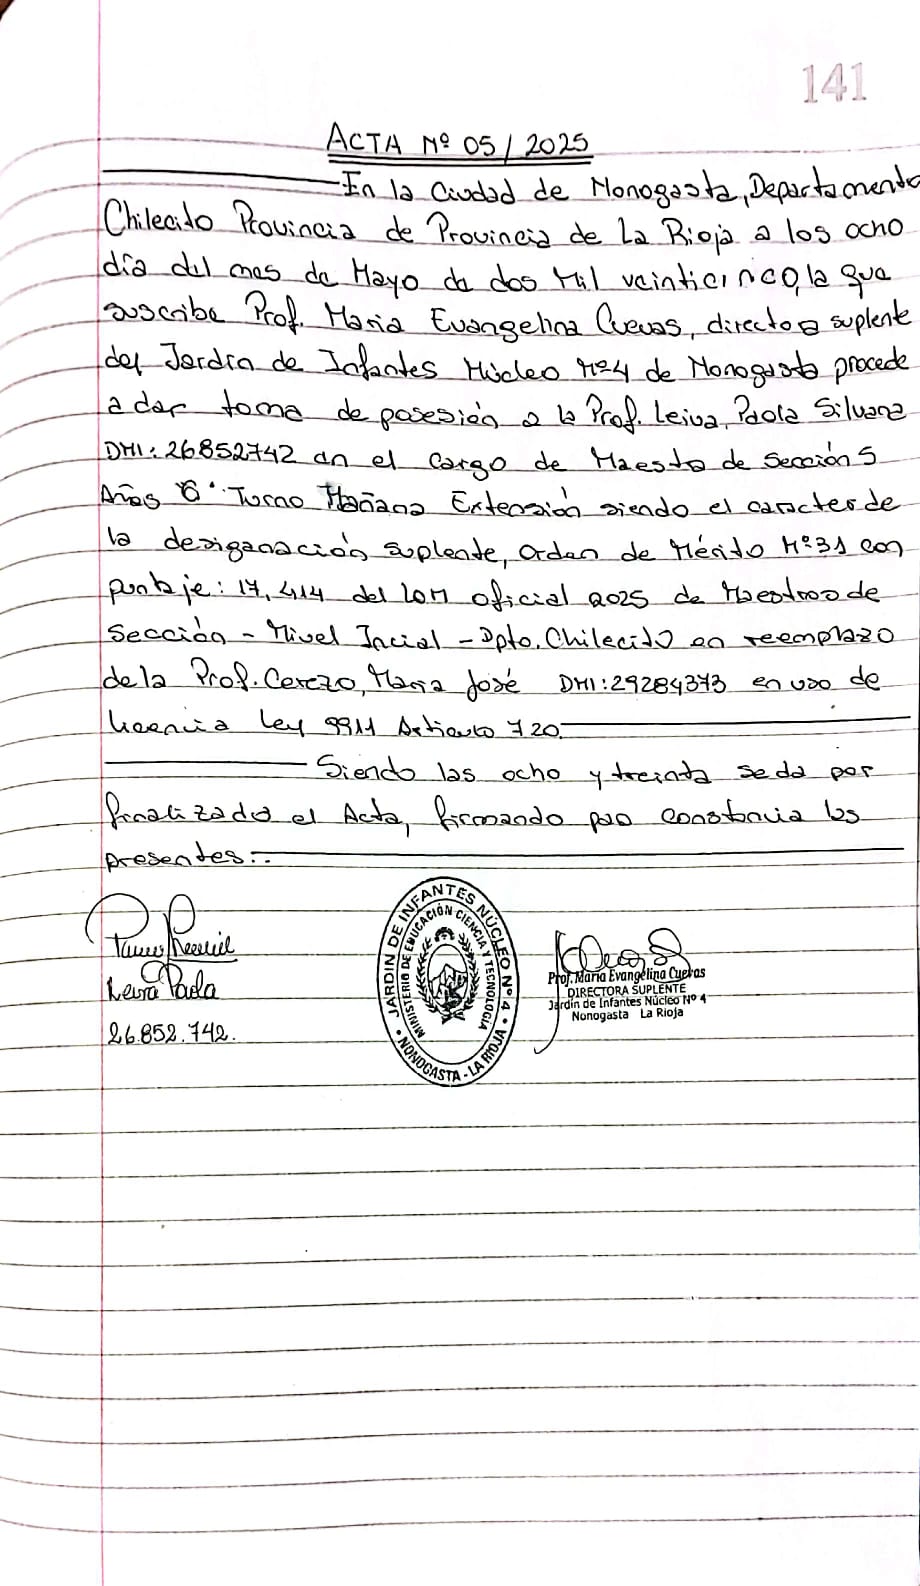 141
ACTA Nº 05/2025
En la Ciudad de Nonogasta, Departamento
Chilecito Provincia de Provincia de La Rioja a los ocho
día del mes de Mayo de dos Mil veinticinco, la que
suscribe Prof. Maria Evangelina Cuevas, directora suplente
del Jardín de Infantes Núcleo Nº4 de Nonogasta procede
a dar toma de posesión a la Prof. Leiva, Paola Silvana
DNI: 26852742 en el Cargo de Maesto de Sección 5
Años "G" Turno Mañana Extensión siendo el caracter de
la desiganación, suplente, orden de Mérito Nº31 con
puntaje: 17,414 del LOM oficial 2025 de Maestros de
Sección - Nivel Incial - Dpto. Chilecito en reemplazo
de la Prof. Cerezo, Maria José DNI: 29284373 en uso de
licencia Ley 9911 Articulo 720.
Siendo las ocho y treinta se da por
finalizado el Acta, firmando para constancia los
presentes:.
Leiva Paola
26.852.742.
JARDIN DE INFANTES NÚCLEO Nº 4 • NONOGASTA - LA RIOJA •
MINISTERIO DE EDUCACIÓN CIENCIA Y TECNOLOGIA
Prof. María Evangelina Cuevas
DIRECTORA SUPLENTE
Jardín de Infantes Núcleo Nº 4
Nonogasta La Rioja